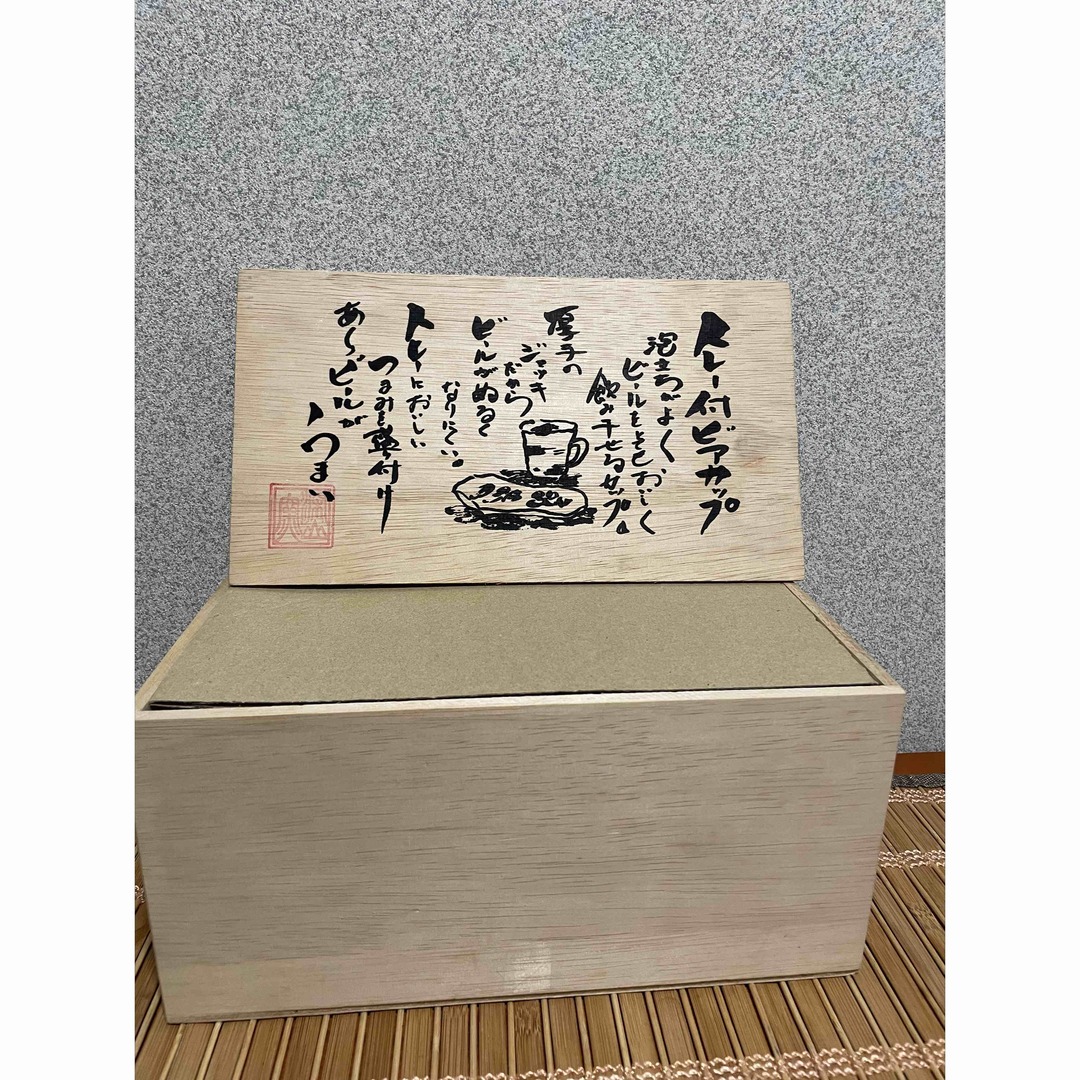 トレー付ビアカップ
泡立ちがよく
ビールをよりおいしく
飲み干せるカップ。
厚手の
ジョッキ
だから
ビールがぬるく
なりにくい。
トレーにおいしい
つまみを盛付け
あ〜ビールが
うまい